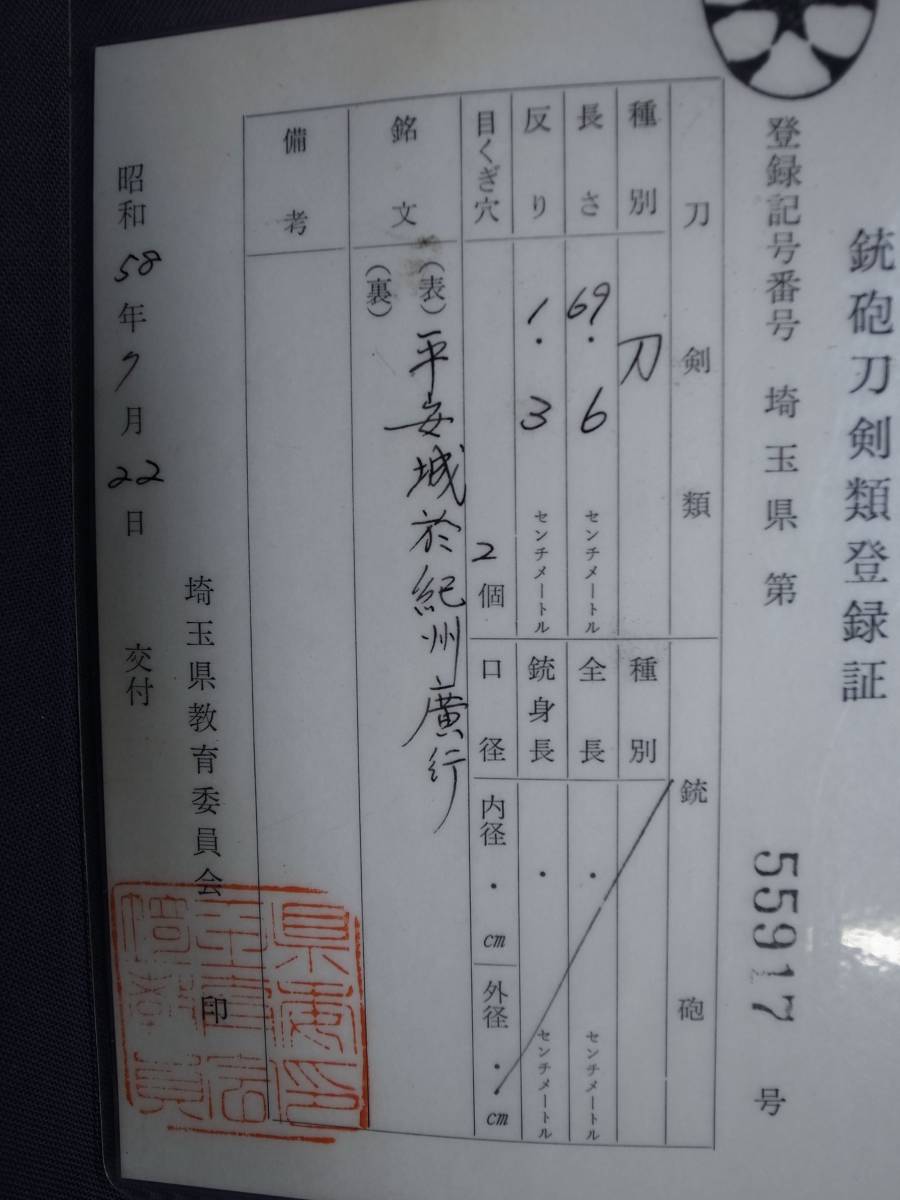 銃砲刀剣類登録証
登録記号番号 埼玉県 第 55917 号
刀剣類
種別 刀
長さ 69.6 センチメートル
反り 1.3 センチメートル
目くぎ穴 2個
銘文
(表) 平安城於紀州廣行
(裏)
備考
銃砲
種別
全長 ・ センチメートル
銃身長 ・ センチメートル
口径
内径 ・ cm
外径 ・ cm
昭和58年7月22日 交付
埼玉県教育委員会 印